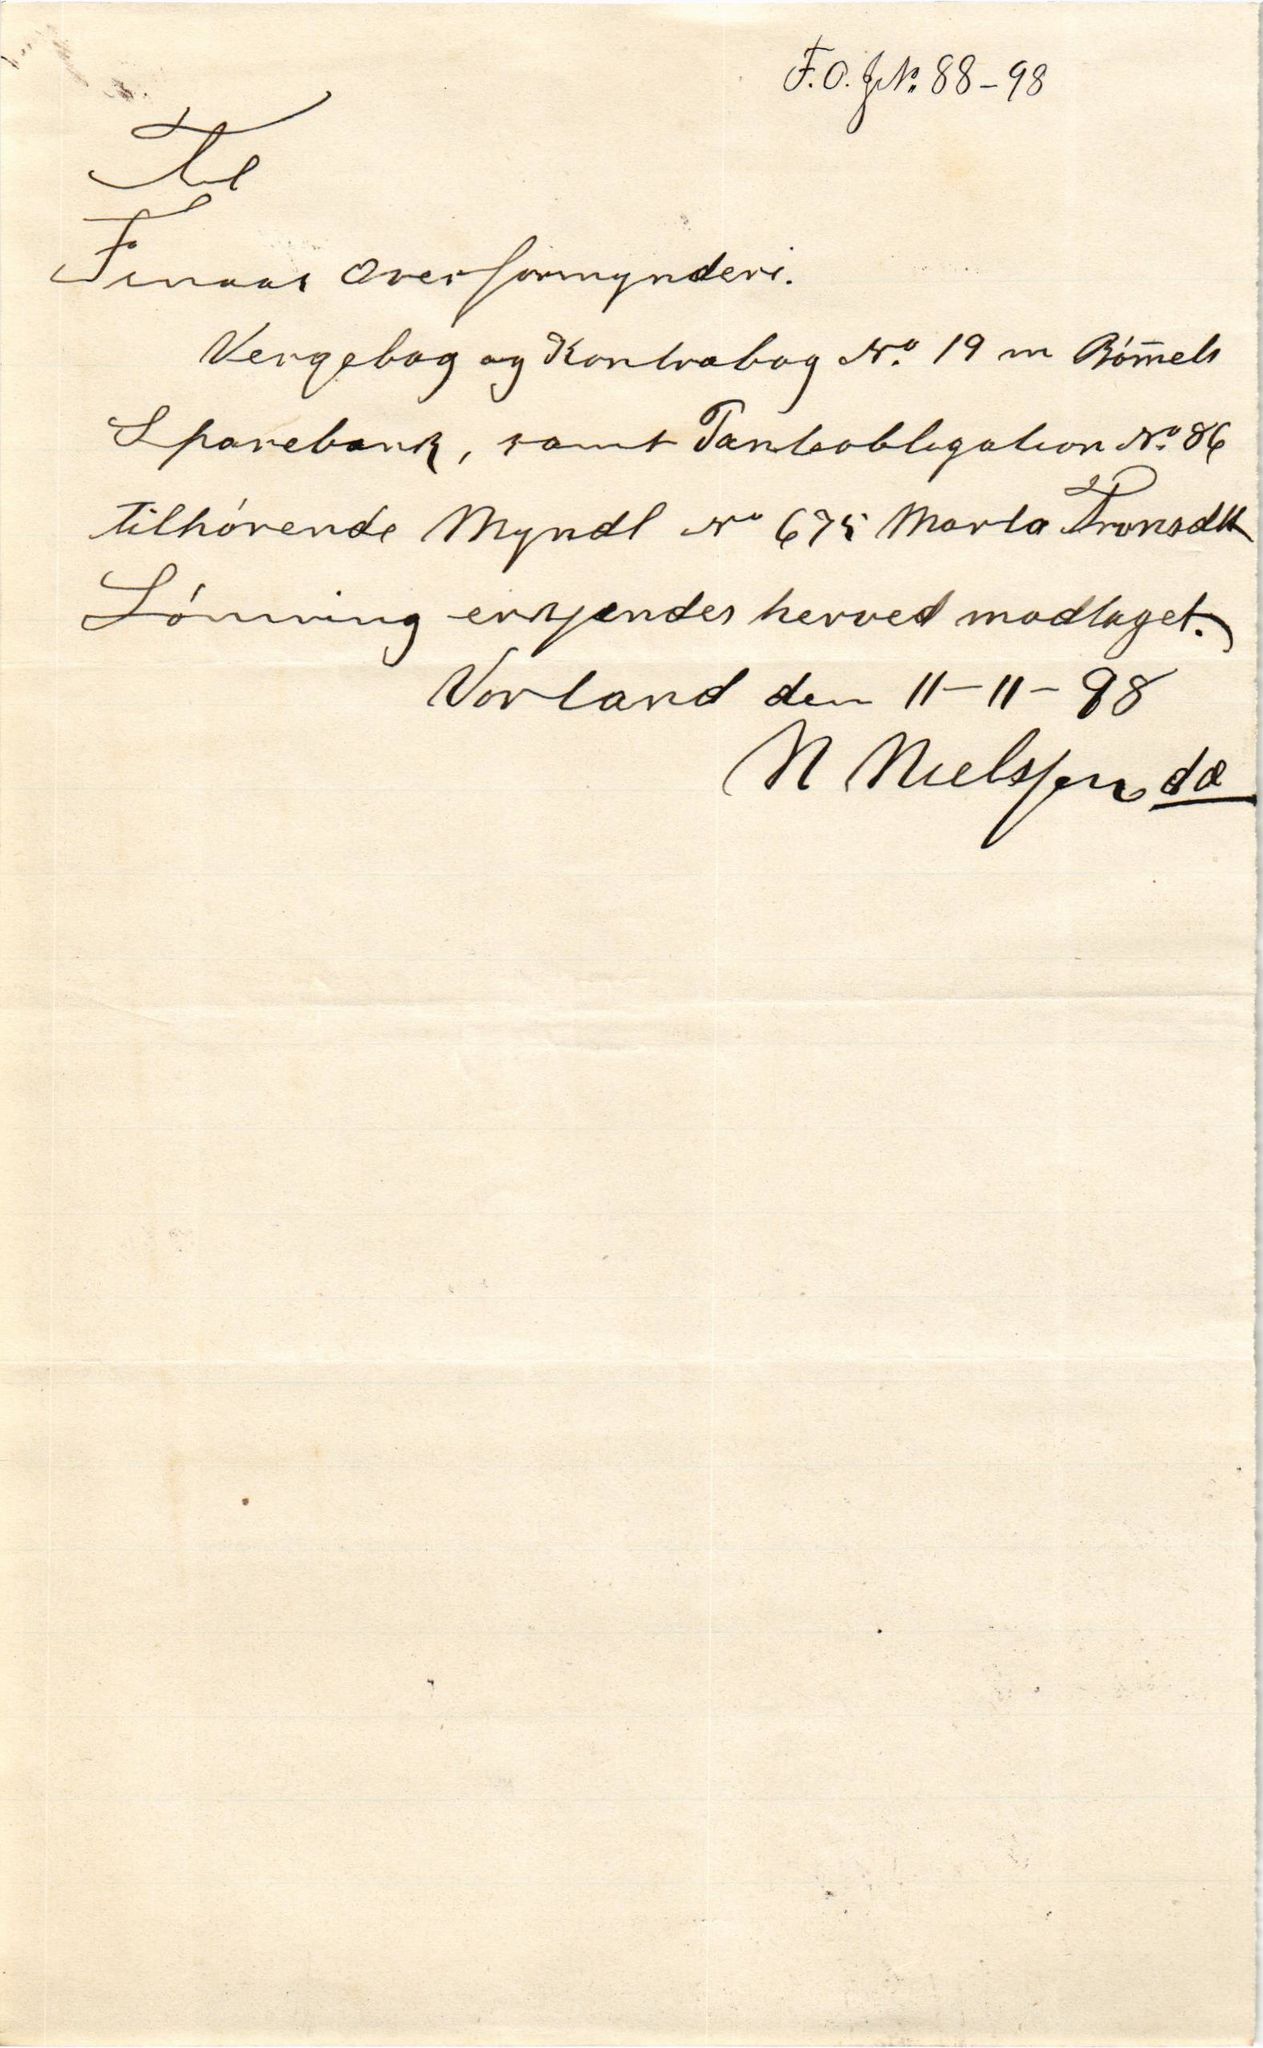 F.O.J.No. 88-98
Til
Finaas Overformynderi.
Vergebog og Kontrabog No. 19 m Bømels
Sparebank, samt Panteobligation No. 86
tilhørende Myndl No 675 Marta Tronsdtt
Lønning erkjendes herved modtaget.
Vorland den 11-11-98
N Nielssen